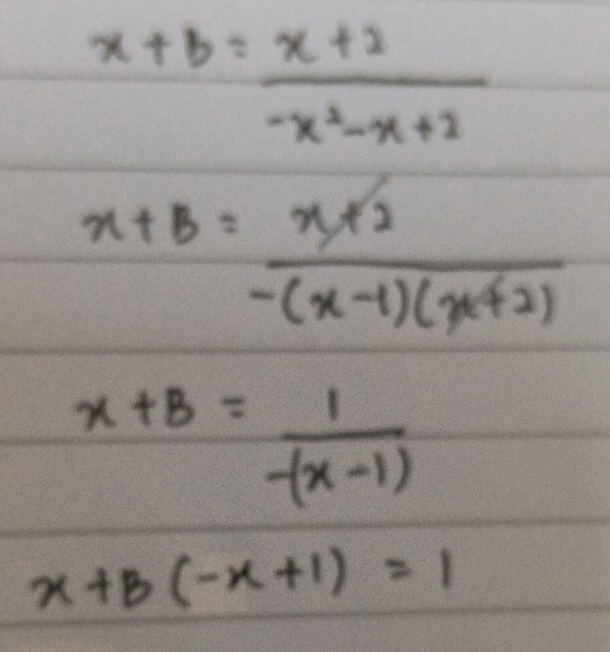 x + B = x + 2
-x² - x + 2
x + B = x + 2
-(x - 1)(x + 2)
x + B = 1
-(x - 1)
x + B (-x + 1) = 1